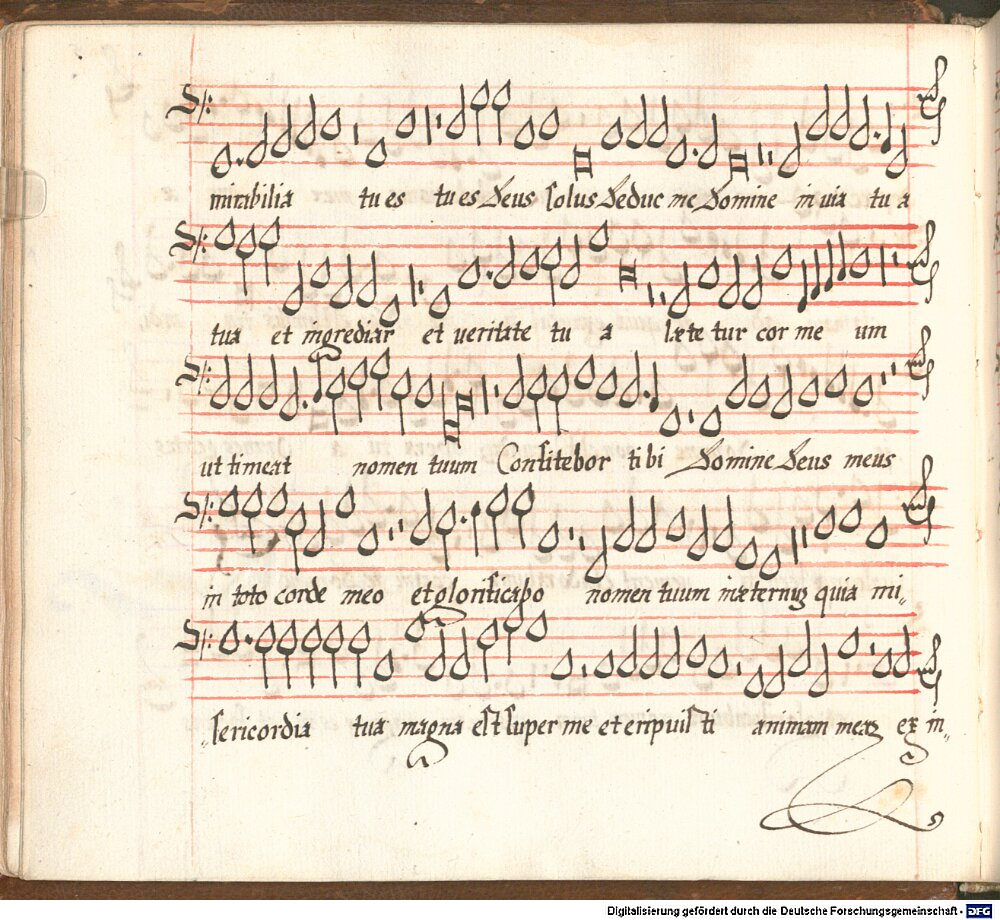 mirabilia tu es tu es Deus solus Deduc me Domine in via tu a
tua et ingrediar et veritate tu a læte tur cor me um
ut timeat nomen tuum Confitebor tibi Domine Deus meus
in toto corde meo et glorificabo nomen tuum in æternuȝ quia mi„
„sericordia tua magna est super me et eripuisti animam meaȝ ex in„
Digitalisierung gefördert durch die Deutsche Forschungsgemeinschaft - DFG